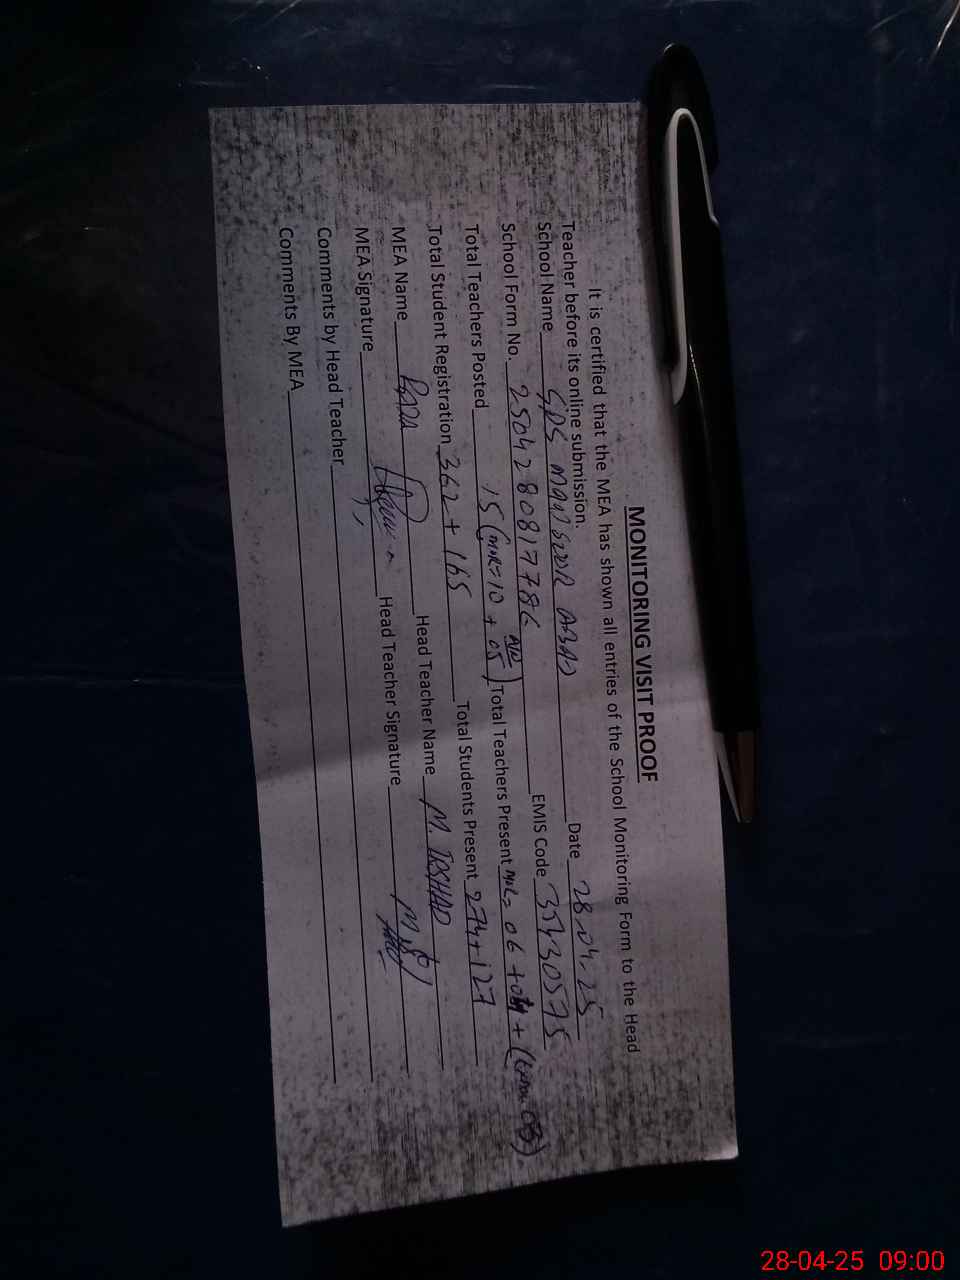 MONITORING VISIT PROOF
It is certified that the MEA has shown all entries of the School Monitoring Form to the Head
Teacher before its online submission.
School Name GPS ABAD Date 28-04-25
School Form No. 2504280817786 EMIS Code 35430575
Total Teachers Posted 15 (MOR=10 + 05) Total Teachers Present 06 +04 + (
Total Student Registration 362 + 165 Total Students Present 274+127
MEA Name Head Teacher Name M. IRSHAD
MEA Signature Head Teacher Signature
Comments by Head Teacher
Comments By MEA
28-04-25 09:00